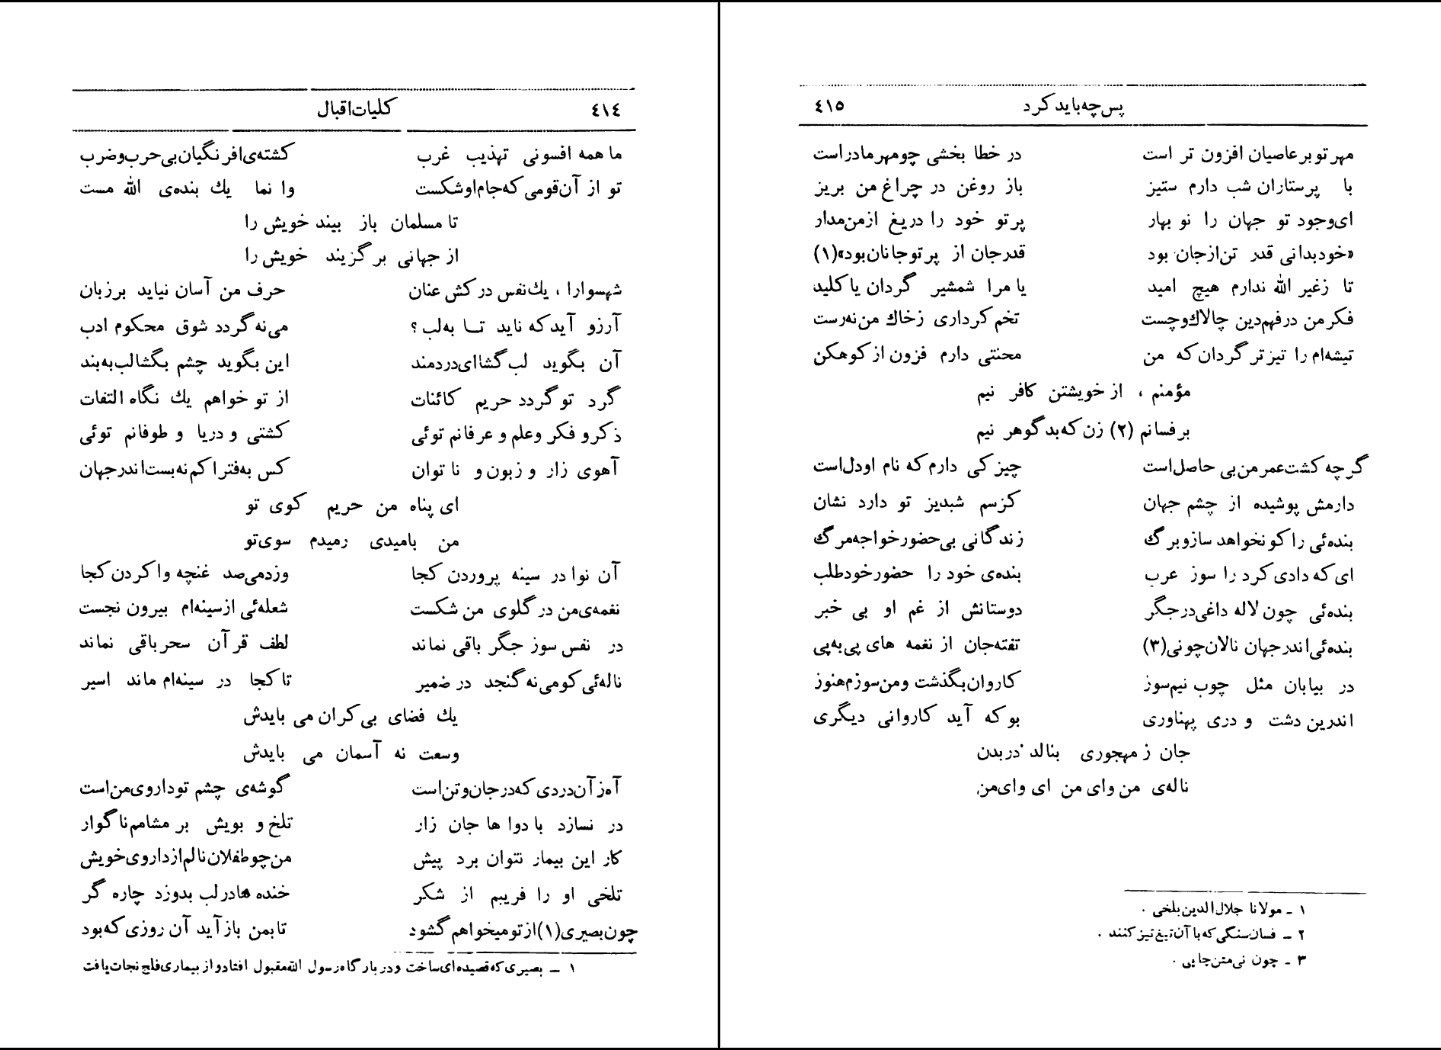 ٤١٤ کلیات اقبال
ما همه افسونی تهذیب غرب کشته‌ی افرنگیان بی حرب و ضرب
تو از آن قومی که جام او شکست وا نما یك بنده‌ی الله مست
تا مسلمان باز بیند خویش را
از جهانی برگزیند خویش را
شهسوارا ، یك نفس درکش عنان حرف من آسان نیاید برزبان
آرزو آید که ناید تا به لب ؟ می نه گردد شوق محکوم ادب
آن بگوید لب گشا ای دردمند این بگوید چشم بگشا لب به بند
گرد تو گردد حریم کائنات از تو خواهم یك نگاه التفات
ذکر و فکر و علم و عرفانم توئی کشتی و دریا و طوفانم توئی
آهوی زار و زبون و ناتوان کس به فتراکم نه بست اندر جهان
ای پناه من حریم کوی تو
من بامیدی رمیدم سوی تو
آن نوا در سینه پروردن کجا وزدمی صد غنچه واکردن کجا
نغمه‌ی من در گلوی من شکست شعله‌ئی از سینه‌ام بیرون نجست
در نفس سوز جگر باقی نماند لطف قرآن سحر باقی نماند
ناله‌ئی کو می نه گنجد در ضمیر تا کجا در سینه‌ام ماند اسیر
یك فضای بی کران می بایدش
وسعت نه آسمان می بایدش
آه زآن دردی که در جان و تن است گوشه‌ی چشم تو داروی من است
در نسازد با دوا ها جان زار تلخ و بویش بر مشامم ناگوار
کار این بیمار نتوان برد پیش من چو طفلان نالم از داروی خویش
تلخی او را فریبم از شکر خنده ها در لب بدوزد چاره گر
چون بصیری(۱) از تو میخواهم گشود تا بمن باز آید آن روزی که بود
۱ ــ بصیری که قصیده ای ساخت و در بارگاه رسول الله مقبول افتاد و از بیماری فلج نجات یافت
پس چه باید کرد ٤١٥
مهر تو بر عاصیان افزون تر است در خطا بخشی چو مهر مادر است
با پرستاران شب دارم ستیز باز روغن در چراغ من بریز
ای وجود تو جهان را نو بهار پرتو خود را دریغ از من مدار
«خود بدانی قدر تن از جان بود قدر جان از پرتو جانان بود»(۱)
تا زغیر الله ندارم هیچ امید یا مرا شمشیر گردان یا کلید
فکر من در فهم دین چالاك و چست تخم کرداری زخاك من نه رست
تیشه‌ام را تیزتر گردان که من محنتی دارم فزون از کوهکن
مؤمنم ، از خویشتن کافر نیم
برفسانم (۲) زن که بدگوهر نیم
گرچه کشت عمر من بی حاصل است چیزکی دارم که نام او دل است
دارمش پوشیده از چشم جهان کز سم شبدیز تو دارد نشان
بنده‌ئی را کو نخواهد ساز و برگ زندگانی بی حضور خواجه مرگ
ای که دادی کرد را سوز عرب بنده‌ی خود را حضور خود طلب
بنده‌ئی چون لاله داغی در جگر دوستانش از غم او بی خبر
بنده‌ئی اندر جهان نالان چونی(۳) تفته جان از نغمه های پی به پی
در بیابان مثل چوب نیم سوز کاروان بگذشت و من سوزم هنوز
اندرین دشت و دری پهناوری بو که آید کاروانی دیگری
جان ز مهجوری بنالد دربدن
ناله‌ی من وای من ای وای من
۱ ـ مولانا جلال الدین بلخی .
۲ ــ فسان سنگی که با آن تیغ تیز کنند .
۳ ـ چون نی متن چاپی .